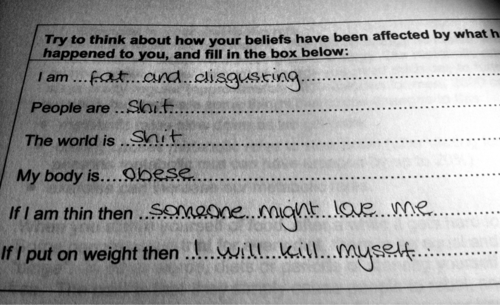 Try to think about how your beliefs have been affected by what h
happened to you, and fill in the box below:
I am ...fat and disgusting...
People are ..Shit...
The world is ..Shit...
My body is....obese...
If I am thin then ..someone might love me...
If I put on weight then .I will kill myself...